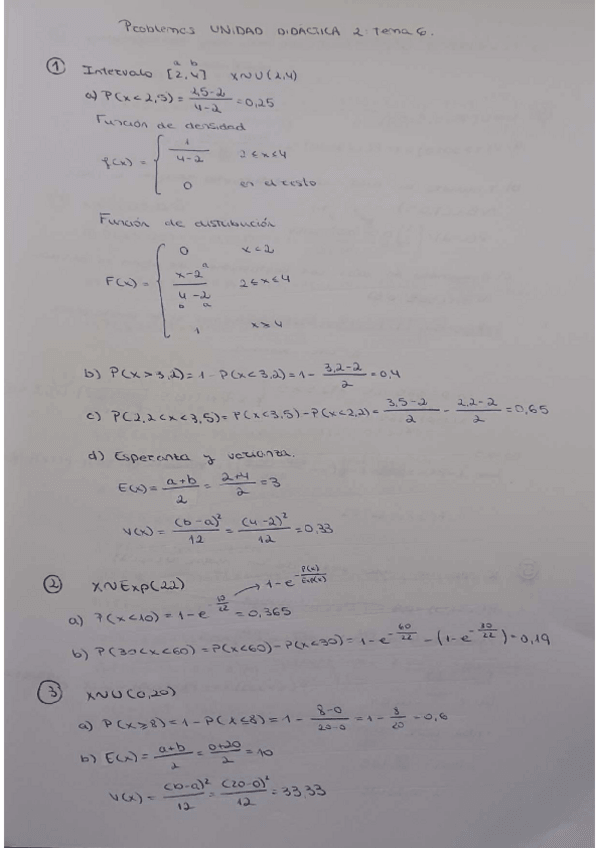 Problemas UNIDAD DIDÁCTICA 2: Tema 6.
① Intervalo [2,4] X~U(2,4)
a b
a) P(x<2,5) = 2,5-2 / 4-2 = 0,25
Función de densidad
f(x) = { 1 / 4-2 2≤x≤4
0 en el resto
Función de distribución
F(x) = { 0 x<2
x-2 a / 4-2 b a 2≤x≤4
1 x≥4
b) P(x>3,2) = 1-P(x<3,2) = 1- 3,2-2 / 2 = 0,4
c) P(2,2<x<3,5) = P(x<3,5)-P(x<2,2) = 3,5-2 / 2 - 2,2-2 / 2 = 0,65
d) Esperanza y varianza.
E(x) = a+b / 2 = 2+4 / 2 = 3
V(x) = (b-a)² / 12 = (4-2)² / 12 = 0,33
② X~Exp(22) → 1-e^-P(x)/Exp(x)
a) P(x<10) = 1-e^-10/22 = 0,365
b) P(30<x<60) = P(x<60)-P(x<30) = 1-e^-60/22 -(1-e^-30/22) = 0,19
③ X~U(0,20)
a) P(x≥8) = 1-P(x≤8) = 1- 8-0 / 20-0 = 1- 8 / 20 = 0,6
b) E(x) = a+b / 2 = 0+20 / 2 = 10
V(x) = (b-a)² / 12 = (20-0)² / 12 = 33,33